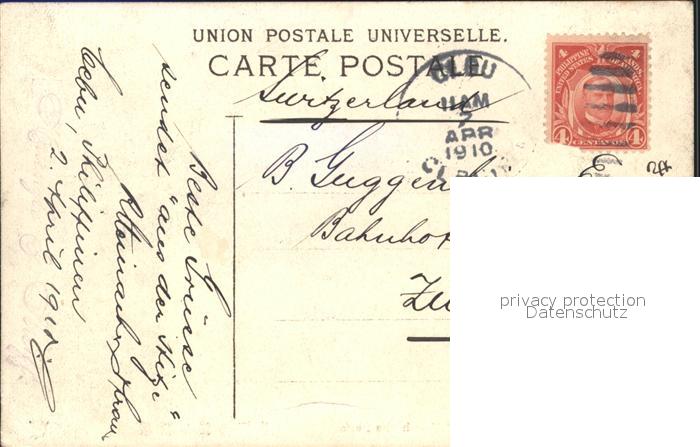 UNION POSTALE UNIVERSELLE.
CARTE POSTALE
Switzerland
CEBU
11 AM
2
APR
1910
4 4
PHILIPPINE ISLANDS
UNITED STATES OF AMERICA
4 CENTAVOS 4
B. Guggen
Bahnho
Zu
Beste Grüsse
sendet "aus der Hitze"
Cebu, Philippinen
2. April 1910.
privacy protection
Datenschutz